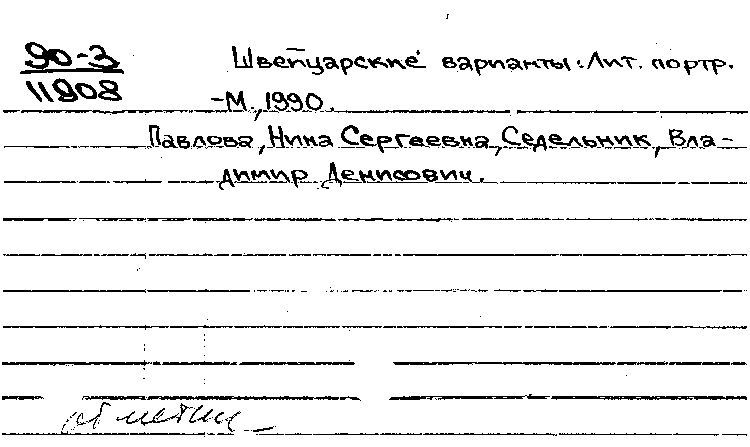 90-3
11908
Швейцарские варианты: Лит. портр.
-М., 1990.
Павлова, Нина Сергеевна, Седельник, Вла-
димир Денисович.